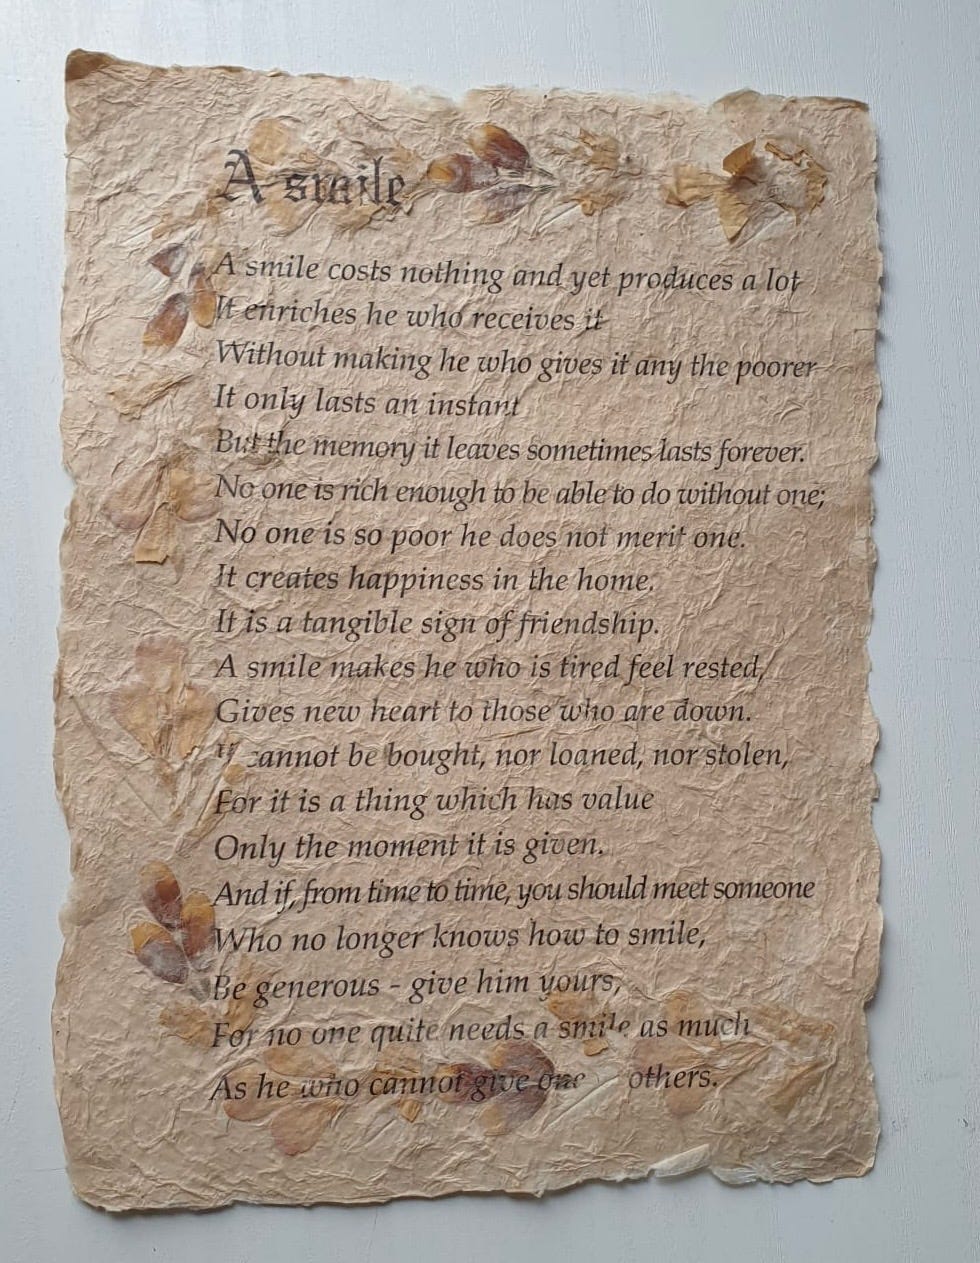 A smile
A smile costs nothing and yet produces a lot
It enriches he who receives it
Without making he who gives it any the poorer
It only lasts an instant
But the memory it leaves sometimes lasts forever.
No one is rich enough to be able to do without one;
No one is so poor he does not merit one.
It creates happiness in the home.
It is a tangible sign of friendship.
A smile makes he who is tired feel rested,
Gives new heart to those who are down.
It cannot be bought, nor loaned, nor stolen,
For it is a thing which has value
Only the moment it is given.
And if, from time to time, you should meet someone
Who no longer knows how to smile,
Be generous - give him yours,
For no one quite needs a smile as much
As he who cannot give one others.